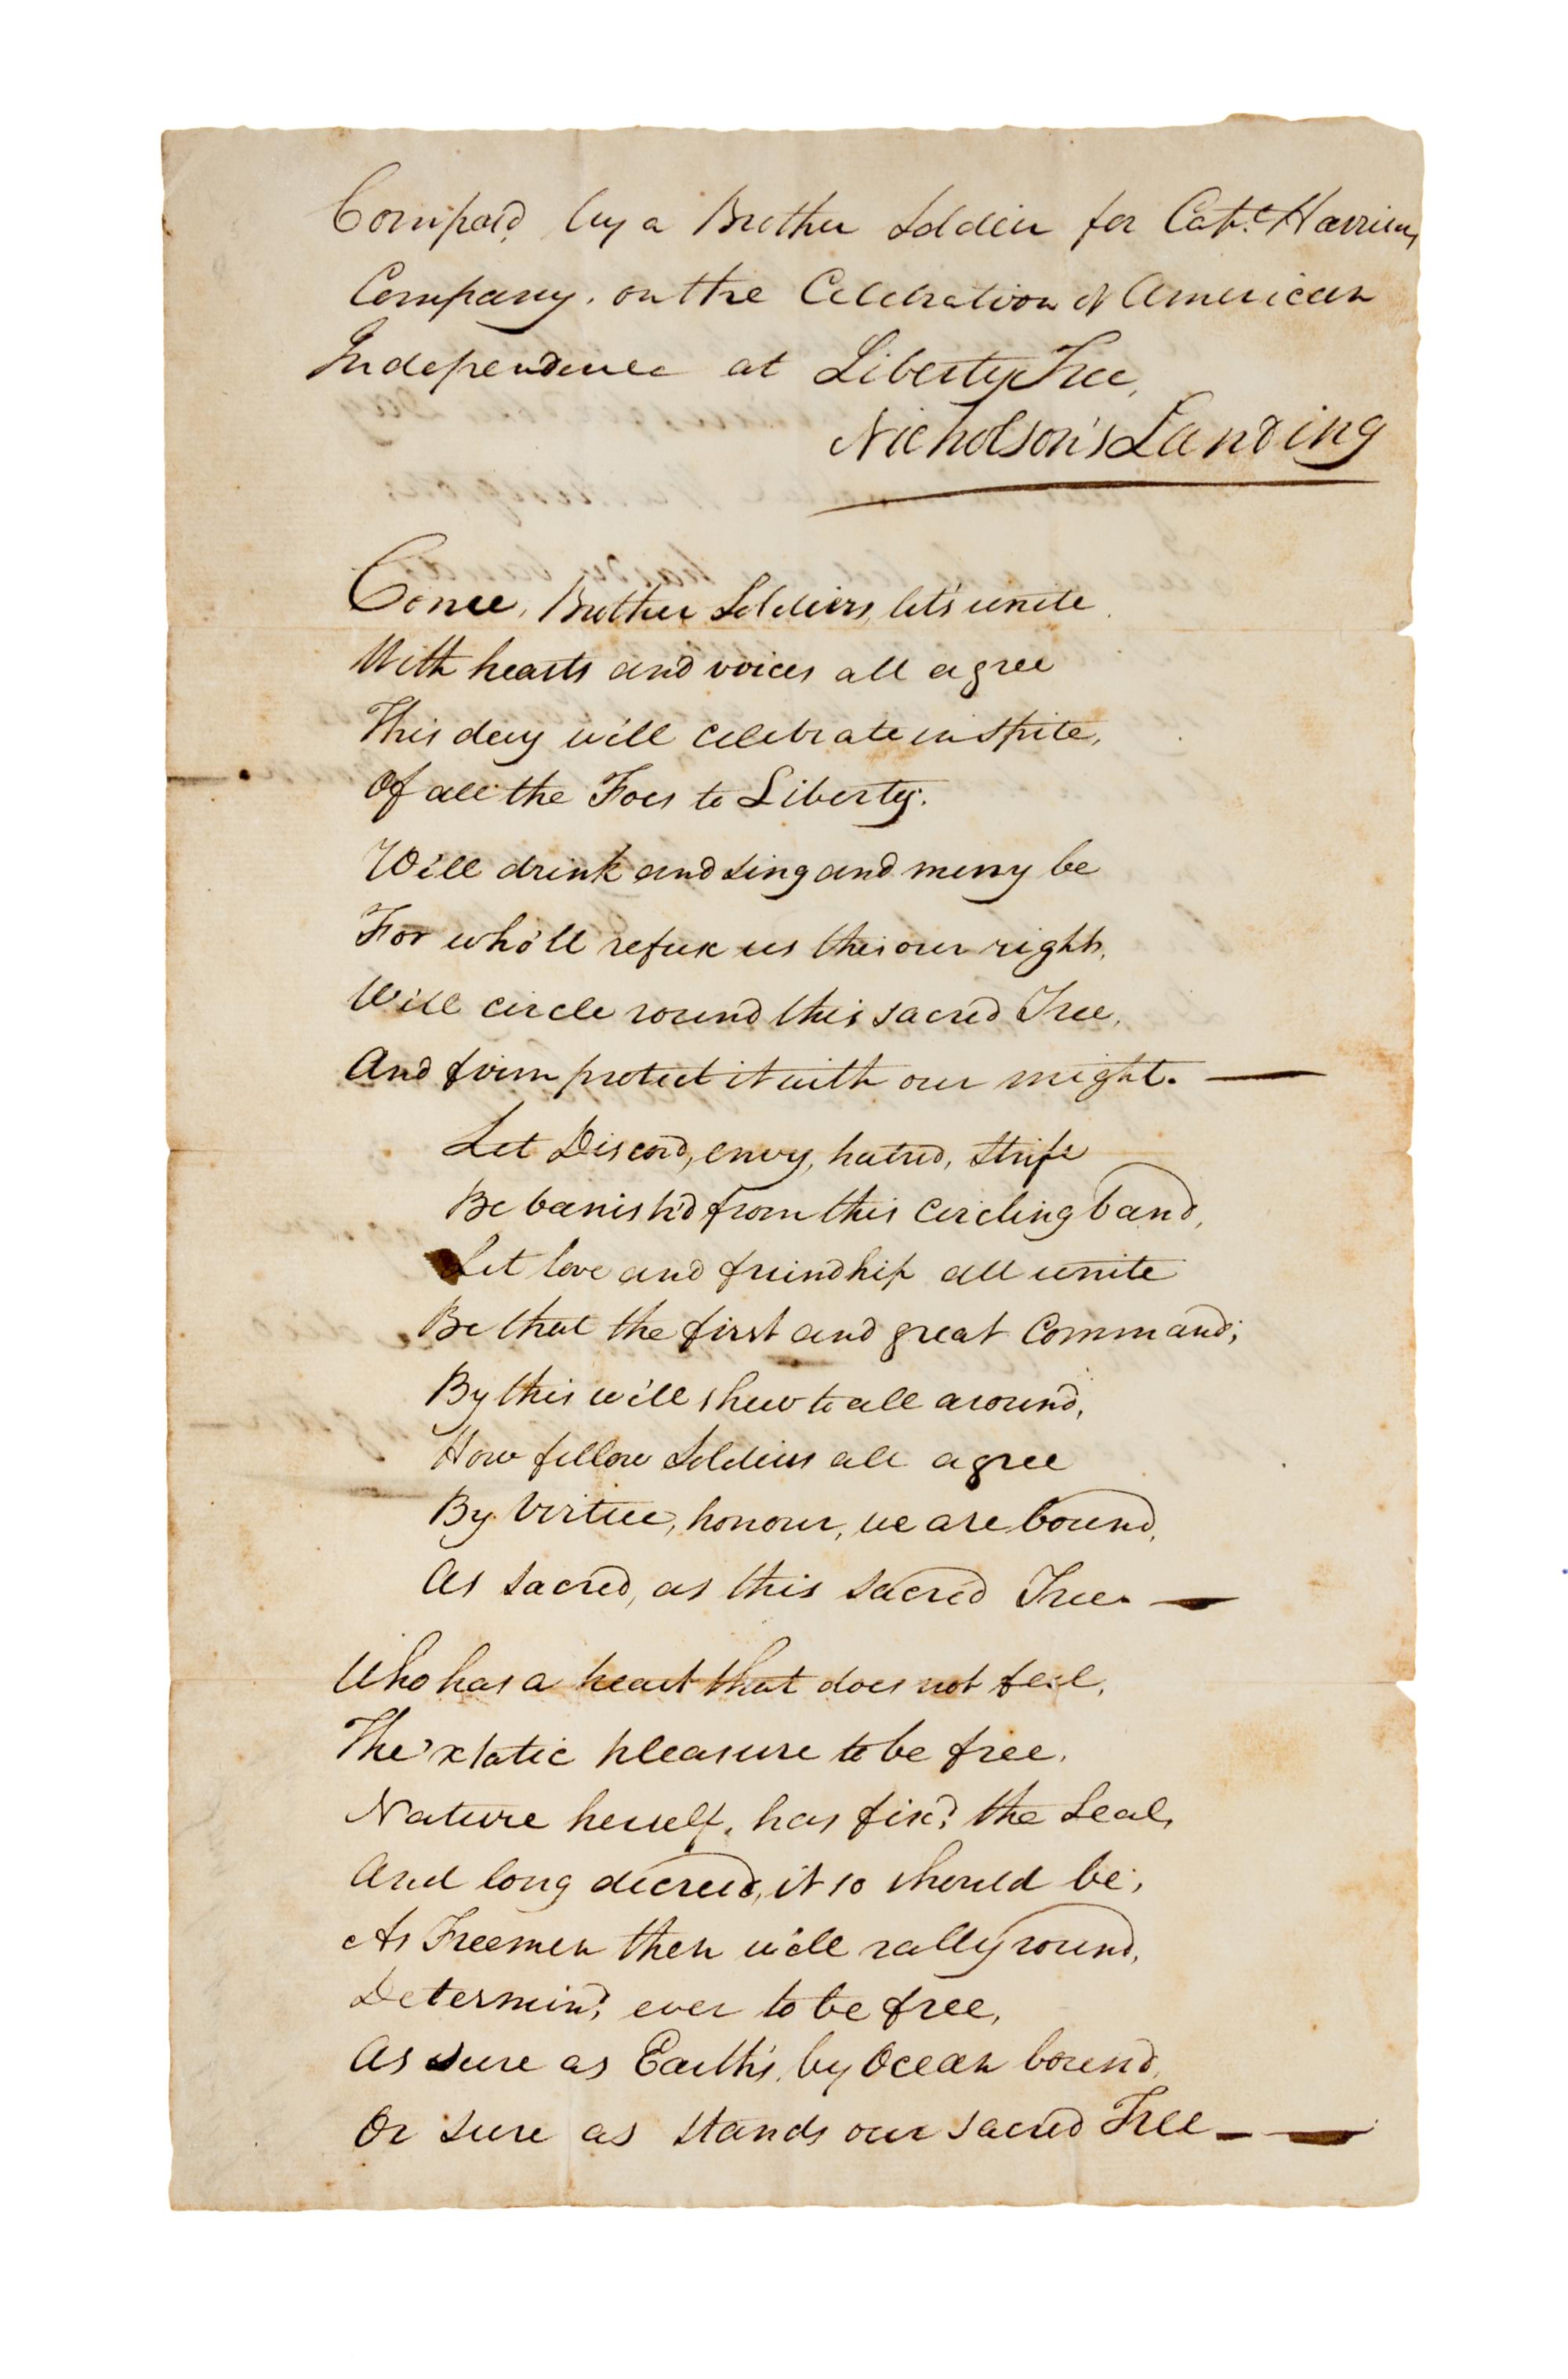 Compos'd by a Brother Soldier for Capt. Harrison's
Company, on the Celebration of American
Independence at Liberty Tree,
Nicholson's Landing
Come, Brother Soldiers, let's unite
With hearts and voices all agree
This day we'll celebrate in spite,
Of all the Foes to Liberty.
We'll drink and sing and merry be
For who'll refuse us this our right,
We'll circle round this sacred Tree,
And firm protect it with our might. —
Let Discord, envy, hatred, strife
Be banish'd from this circling band,
Let love and friendship all unite
Be that the first and great Command;
By this we'll shew to all around,
How fellow Soldiers all agree
By Virtue, honour, we are bound,
As sacred, as this sacred Tree. —
Who has a heart that does not feel,
The 'xtatic pleasure to be free,
Nature herself, has fix'd the Seal,
And long decreed, it so should be;
As Freemen then we'll rally round,
Determin'd ever to be free,
As sure as Earth's, by Ocean bound,
Or sure as stands our sacred Tree — —